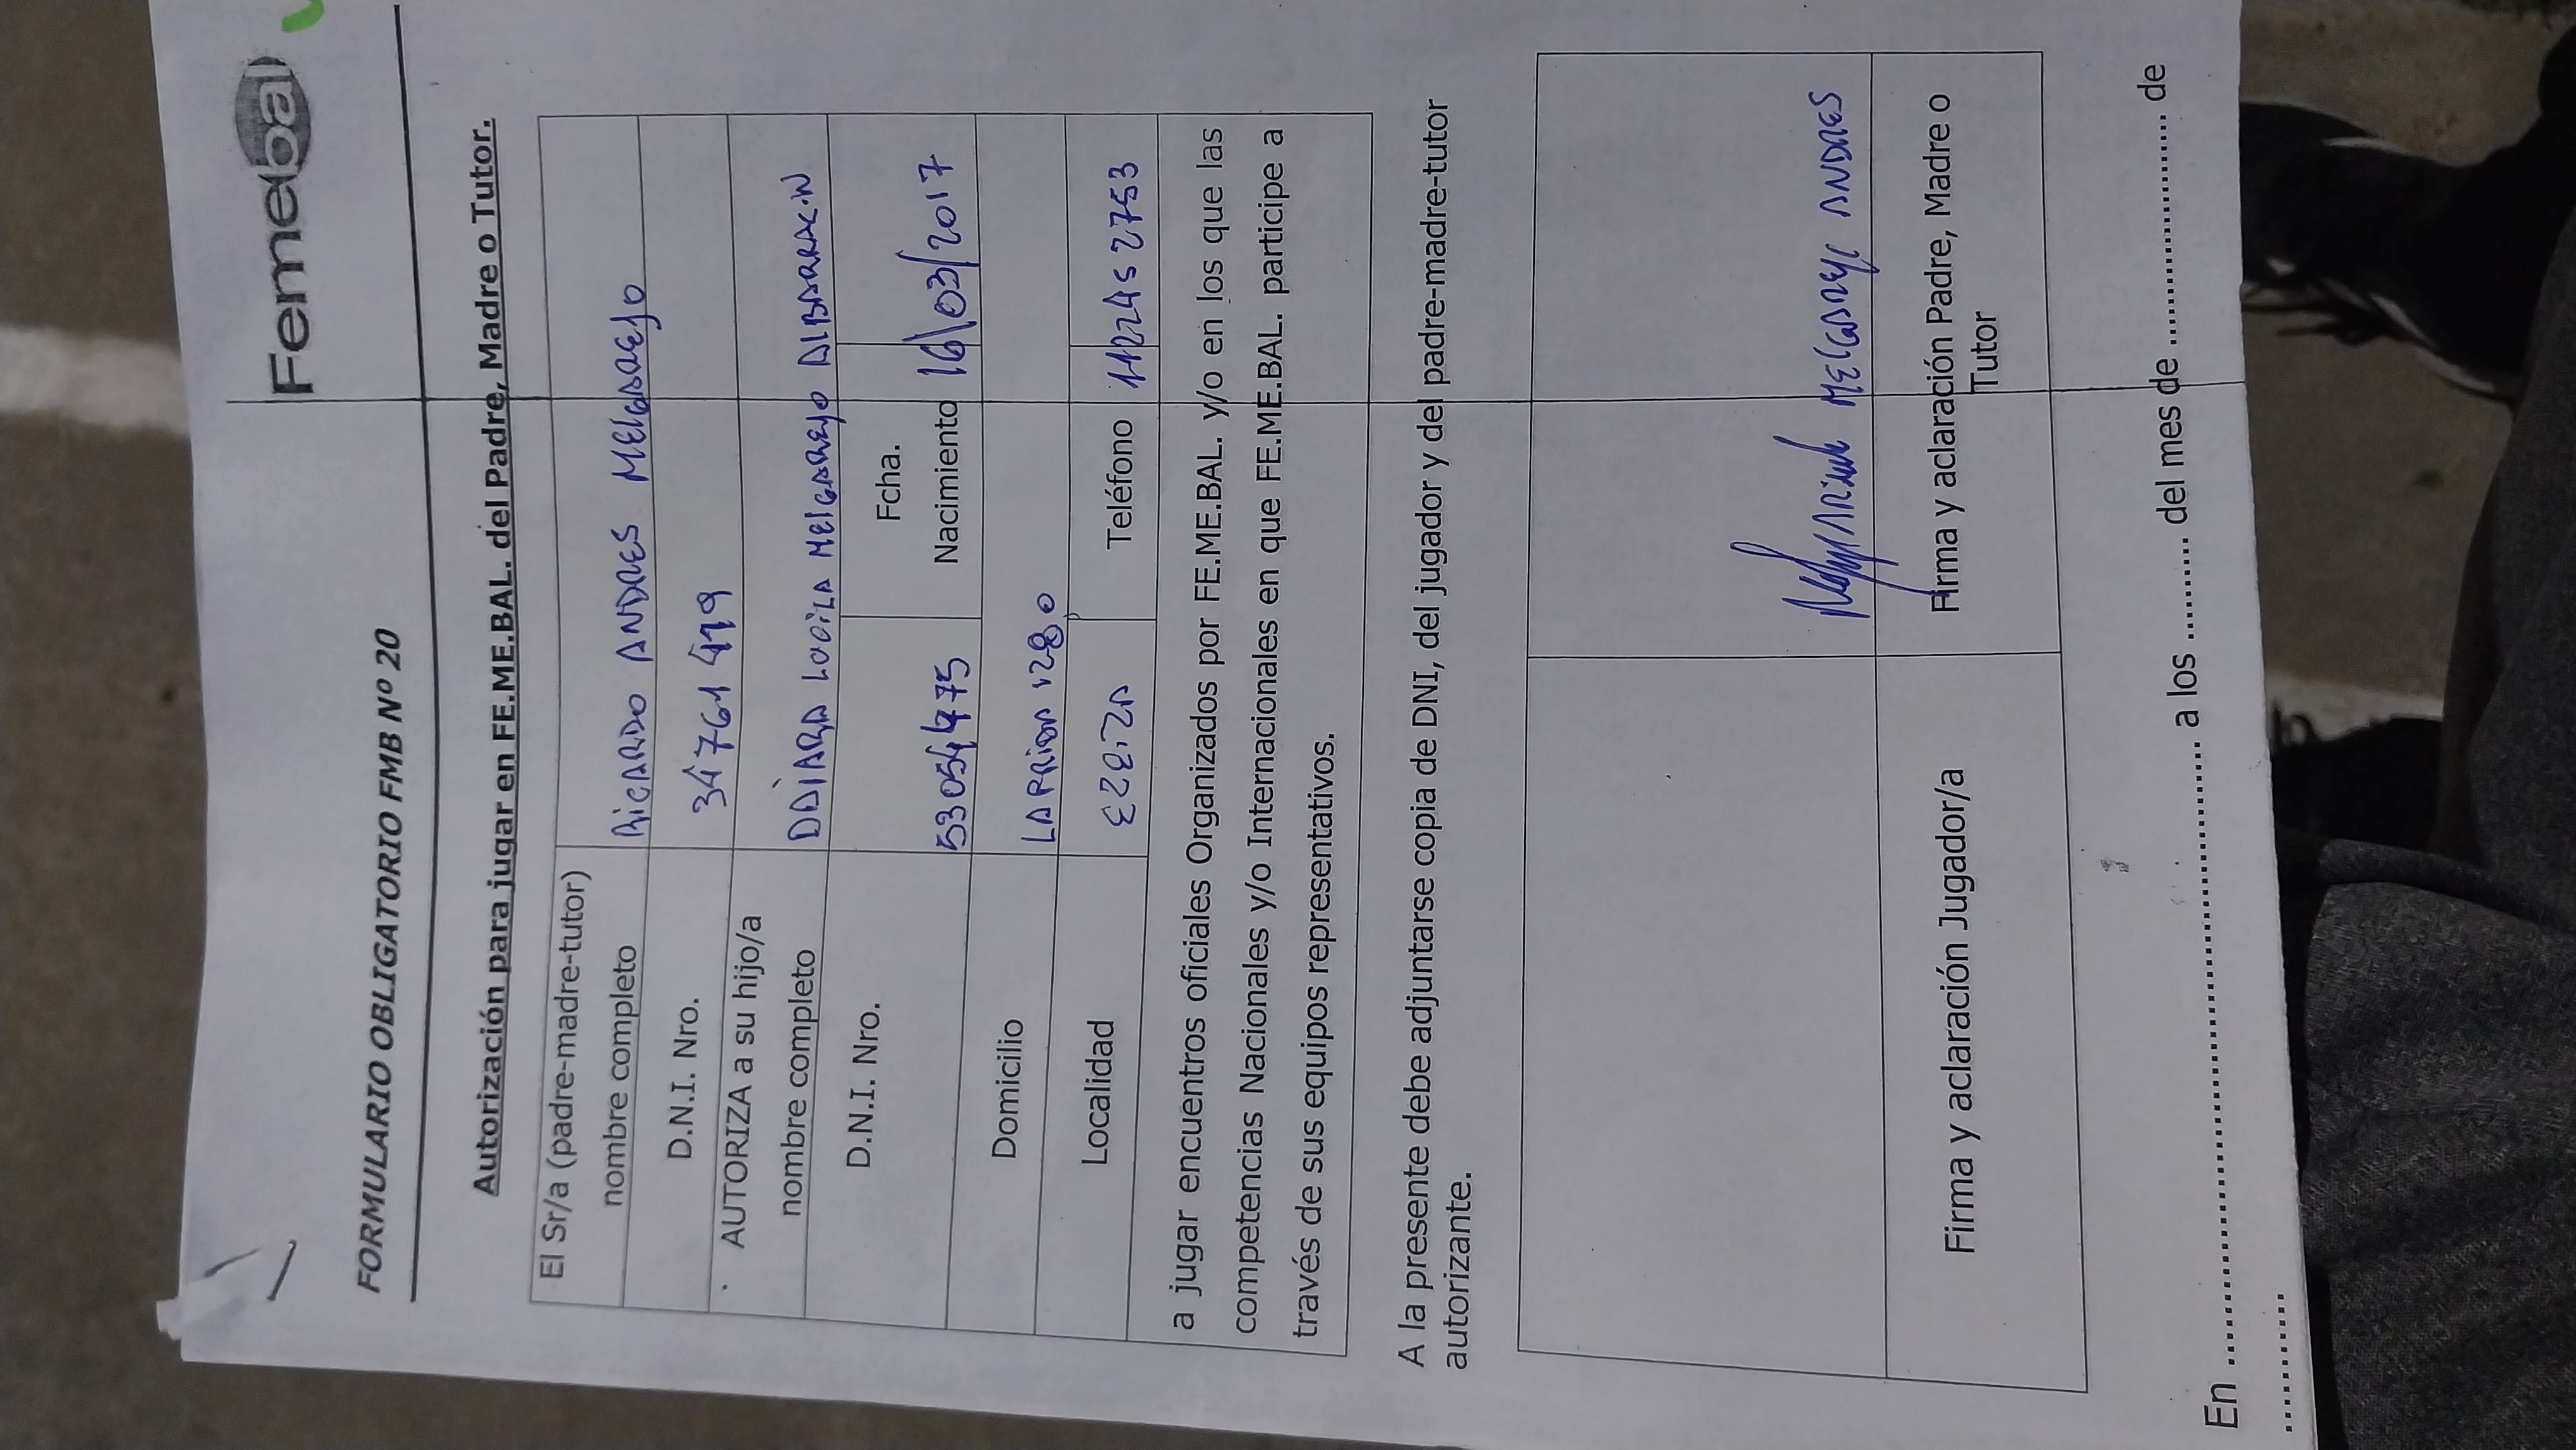 Femebal
FORMULARIO OBLIGATORIO FMB Nº 20
Autorización para jugar en FE.ME.BAL. del Padre, Madre o Tutor.
El Sr/a (padre-madre-tutor)
nombre completo RICARDO ANDRES MELGAREJO
D.N.I. Nro. 34761419
AUTORIZA a su hijo/a
nombre completo MELGAREJO ALBARRACIN
D.N.I. Nro. 53054475 Fcha.
Nacimiento 16/03/2017
Domicilio
Localidad EZEIZA Teléfono 1122452753
a jugar encuentros oficiales Organizados por FE.ME.BAL. y/o en los que las
competencias Nacionales y/o Internacionales en que FE.ME.BAL. participe a
través de sus equipos representativos.
A la presente debe adjuntarse copia de DNI, del jugador y del padre-madre-tutor
autorizante.
MELGAREJO ANDRES
Firma y aclaración Jugador/a Firma y aclaración Padre, Madre o
Tutor
En ........................................................ a los .......... del mes de ...................... de
...........